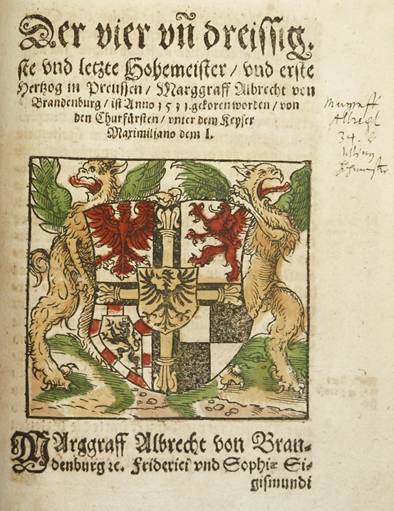 Der vier vñ dreissig.
ste vnd letzte Hohemeister / vnd erste
Hertzog in Preussen / Marggraff Albrecht von
Brandenburg / ist Anno 1511. gekoren worden / von
den Churfürsten / vnter dem Keyser
Maximiliano dem I.
Marggraff
Albrecht
34.
MArggraff Albrecht von Bran-
denburg ꝛc. Friderici vnd Sophiæ Si-
gismundi